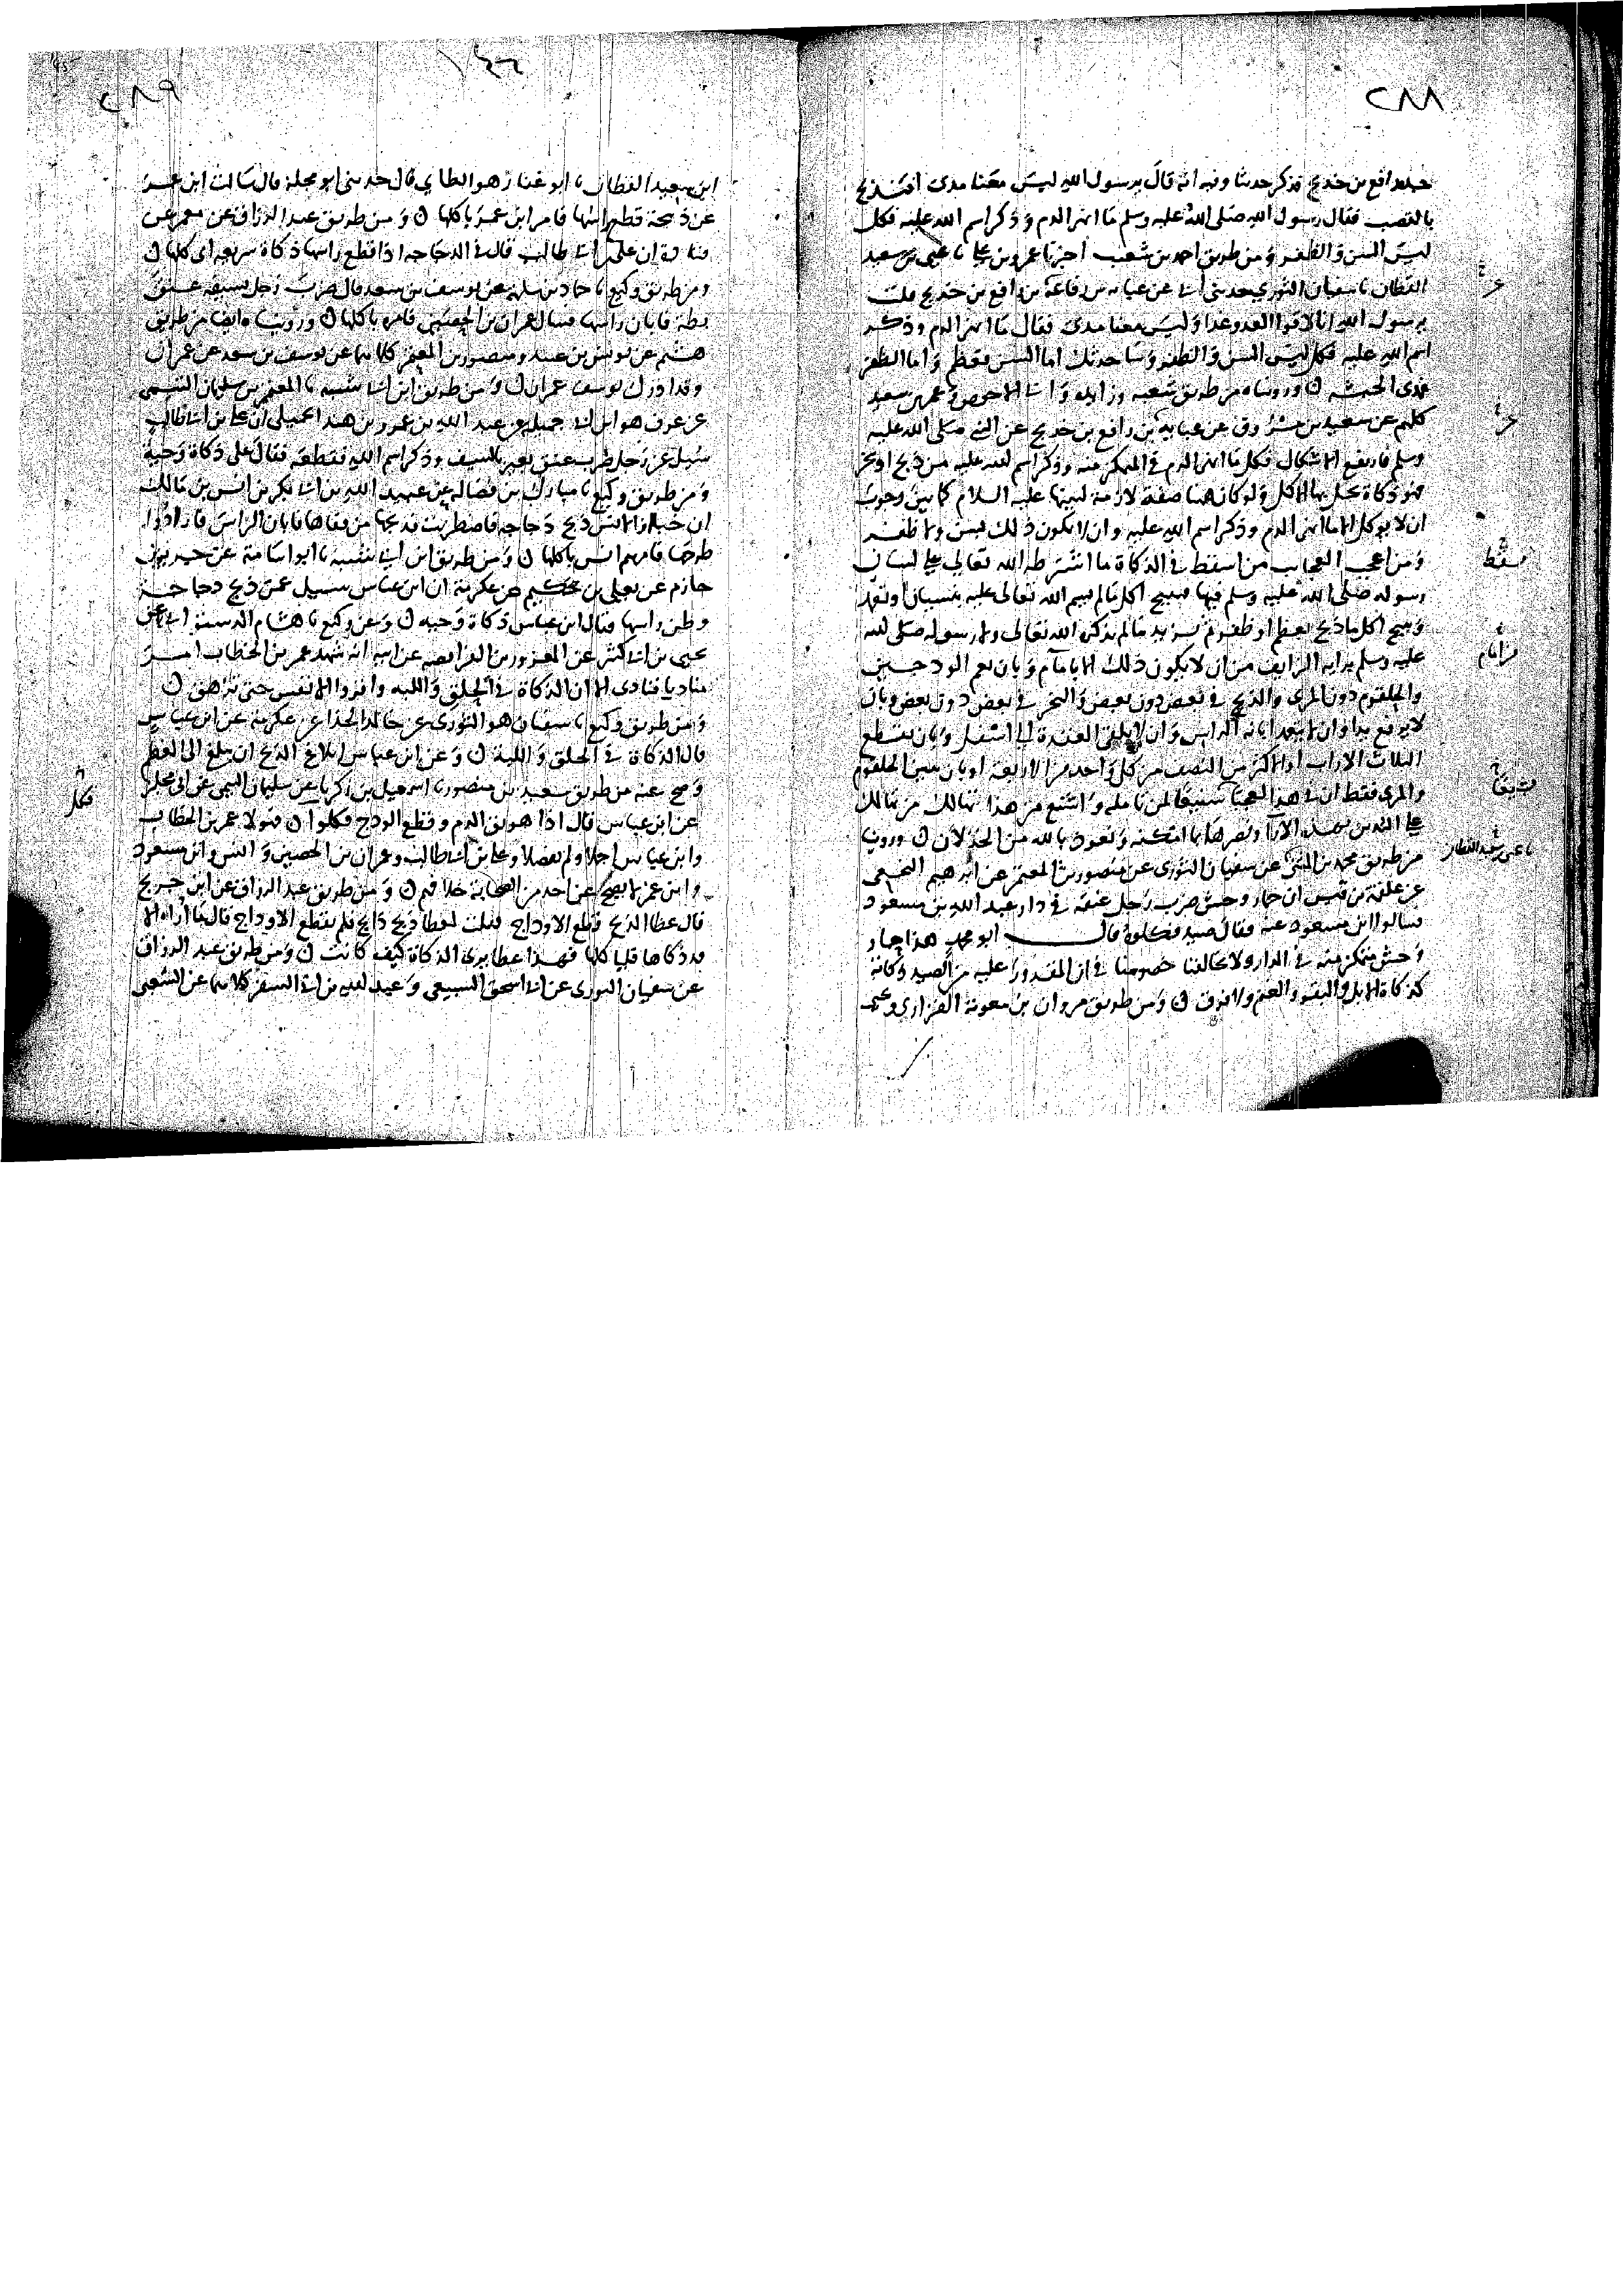 ٢٨٨
رافع بن خديج فذكر حديثا وفيه انه قال يرسول الله ليس معنا مدى افنذبح
بالقصب فقال رسول الله صلى الله عليه وسلم ما انهر الدم وذكر اسم الله عليه فكل
ليس السن والظفر ومن طريق احمد بن شعيب اخبرنا عمرو بن علي نا يحيى بن سعيد
القطان نا سفيان الثوري حدثني ابي عن عباية بن رفاعة بن رافع بن خديج قلت
يرسول الله انا لاقوا العدو غدا وليس معنا مدى فقال ما انهر الدم وذكر
اسم الله عليه فكل ليس السن والظفر وساحدثك اما السن فعظم واما الظفر
فمدى الحبشة ورويناه من طريق شعبة وزايدة وابي الاحوص وعمر بن سعيد
كلهم عن سعيد بن مسروق عن عباية بن رافع بن خديج عن النبي صلى الله عليه
وسلم فارتفع الاشكال فكل ما انهر الدم في المتمكن منه وذكر اسم الله عليه من ذبح او نحر
فهو ذكاة يحل بها الاكل ولو كان هاهنا صفة لازمة لبينها عليه السلام كما بين وجوب
ان لا يوكل الا ما انهر الدم وذكر اسم الله عليه وان لا يكون ذلك بسن ولا ظفر
ومن اعجب العجايب من اسقط في الذكاة ما اشترطه الله تعالى على لسان
رسوله صلى الله عليه وسلم فيها فيبيح اكل ما لم يسم الله تعالى عليه بنسيان او تعمد
ويبيح اكل ما ذبح بعظم او ظفر ثم يزيد ما لم يذكره الله تعالى ولا رسوله صلى الله
عليه وسلم برايه الزايف من ان لا يكون ذلك الا بامام وبان نعم الودجين
والحلقوم دون المرى والذبح في بعض دون بعض والنحر في بعض دون بعض وبان
لا يرفع يدا وان لا يتعمد ابانة الراس وان لا يلقى العقدة الى اسفل وبان يقطع
الثلاث الاراب او الاكثر من النصف من كل واحد من الاربعة او بان يبين الحلقوم
والمرى فقط ان في هذا العجبا شنيعا لمن تامله واشنع من هذا تهالك من تهالك
على التدين بهذه الارا ونصرها بما امكنه ونعوذ بالله من الخذلان وروينا
من طريق محمد بن المثنى عن سفيان الثورى عن منصور بن المعتمر عن ابرهيم النخعي
عن علقمة بن قيس ان حمار وحش ضرب رجل عنقه في دار عبد الله بن مسعود
فسالوا ابن مسعود عنه فقال صيد فكلوه قال ابو محمد هذا حمار
وحش متمكن منه في الدار ولا يخالفنا خصومنا في ان المقدور عليه من الصيد ذكاته
كذكاة الابل والبقر والغنم ولا فرق ومن طريق مروان بن معوية الفزاري ويحيى
سقط
من امام
نا يحيى بن سعيد القطان
٢٨٩
ابن سعيد القطان نا ابو غفار هو الطاي قال حدثني ابو مجلز قال سالت ابن عمر
عن ذبيحة قطع راسها فامر ابن عمر باكلها ومن طريق عبد الرزاق عن معمر عن
قتادة ان علي بن ابي طالب قال في الدجاجة اذا قطع راسها ذكاة سريعة اي كلها
ومن طريق وكيع نا حماد بن سلمة عن يوسف بن سعد قال ضرب رجل بسيفه عنق
بطة فابان راسها فسال عمران بن الحصين فامره باكلها ورويناه ايضا من طريق
هشيم عن يونس بن عبيد ومنصور بن المعتمر كلاهما عن يوسف بن سعد عن عمران
وقد ادرك يوسف عمران ومن طريق ابن ابي شيبة نا المعتمر بن سليمان التيمي
عن عوف هو ابن ابي جميلة عن عبد الله بن عمرو بن هند الجملي ان علي بن ابي طالب
سيل عن رجل ضرب عنق بعير بالسيف وذكر اسم الله فقطعه فقال علي ذكاة وحية
ومن طريق وكيع نا مبارك بن فضالة عن عبيد الله بن ابي بكر بن انس بن مالك
ان خبازا لانس ذبح دجاجة فاضطربت فذبحها من قفاها فابان الراس فارادوا
طرحها فامرهم انس باكلها ومن طريق ابن ابي شيبة نا ابو اسامة عن جرير بن
حازم عن يعلى بن حكيم عن عكرمة ان ابن عباس سيل عمن ذبح دجاجة
وطير راسها فقال ابن عباس ذكاة وحية وعن وكيع نا هشام الدستواي عن
يحيى بن ابي كثير عن المعرور بن الفرافصة عن ابيه انه شهد عمر بن الخطاب امر
مناديا فنادى الا ان الذكاة في الحلق واللبة واقروا الانفس حتى تزهق
ومن طريق وكيع نا سفيان هو الثورى عن خالد الحذا عن عكرمة عن ابن عباس
قال الذكاة في الحلق واللبة وعن ابن عباس ابلاغ الذبح ان يبلغ الى العظم
وصح عنه من طريق سعيد بن منصور نا اسمعيل بن زكريا عن سليمان التيمي عن ابي مجلز
عن ابن عباس قال اذا هريق الدم وقطع الودج فكلوا فهولا عمر بن الخطاب
وابن عباس اجملا ولم يفصلا وعلي بن ابي طالب وعمران بن الحصين وانس وابن مسعود
وابن عمر لا يصح عن احد من الصحابة خلافهم ومن طريق عبد الرزاق عن ابن جريج
قال عطا الذبح قطع الاوداج فقلت لعطا ذبح ذابح فلم يقطع الاوداج قال ما اراه الا
قد ذكاها فلياكلها فهذا عطا يرى الذكاة كيف كانت ومن طريق عبد الرزاق
عن سفيان الثورى عن ابي اسحق السبيعي وعبد الله بن ابي السفر كلاهما عن الشعبي
فكل